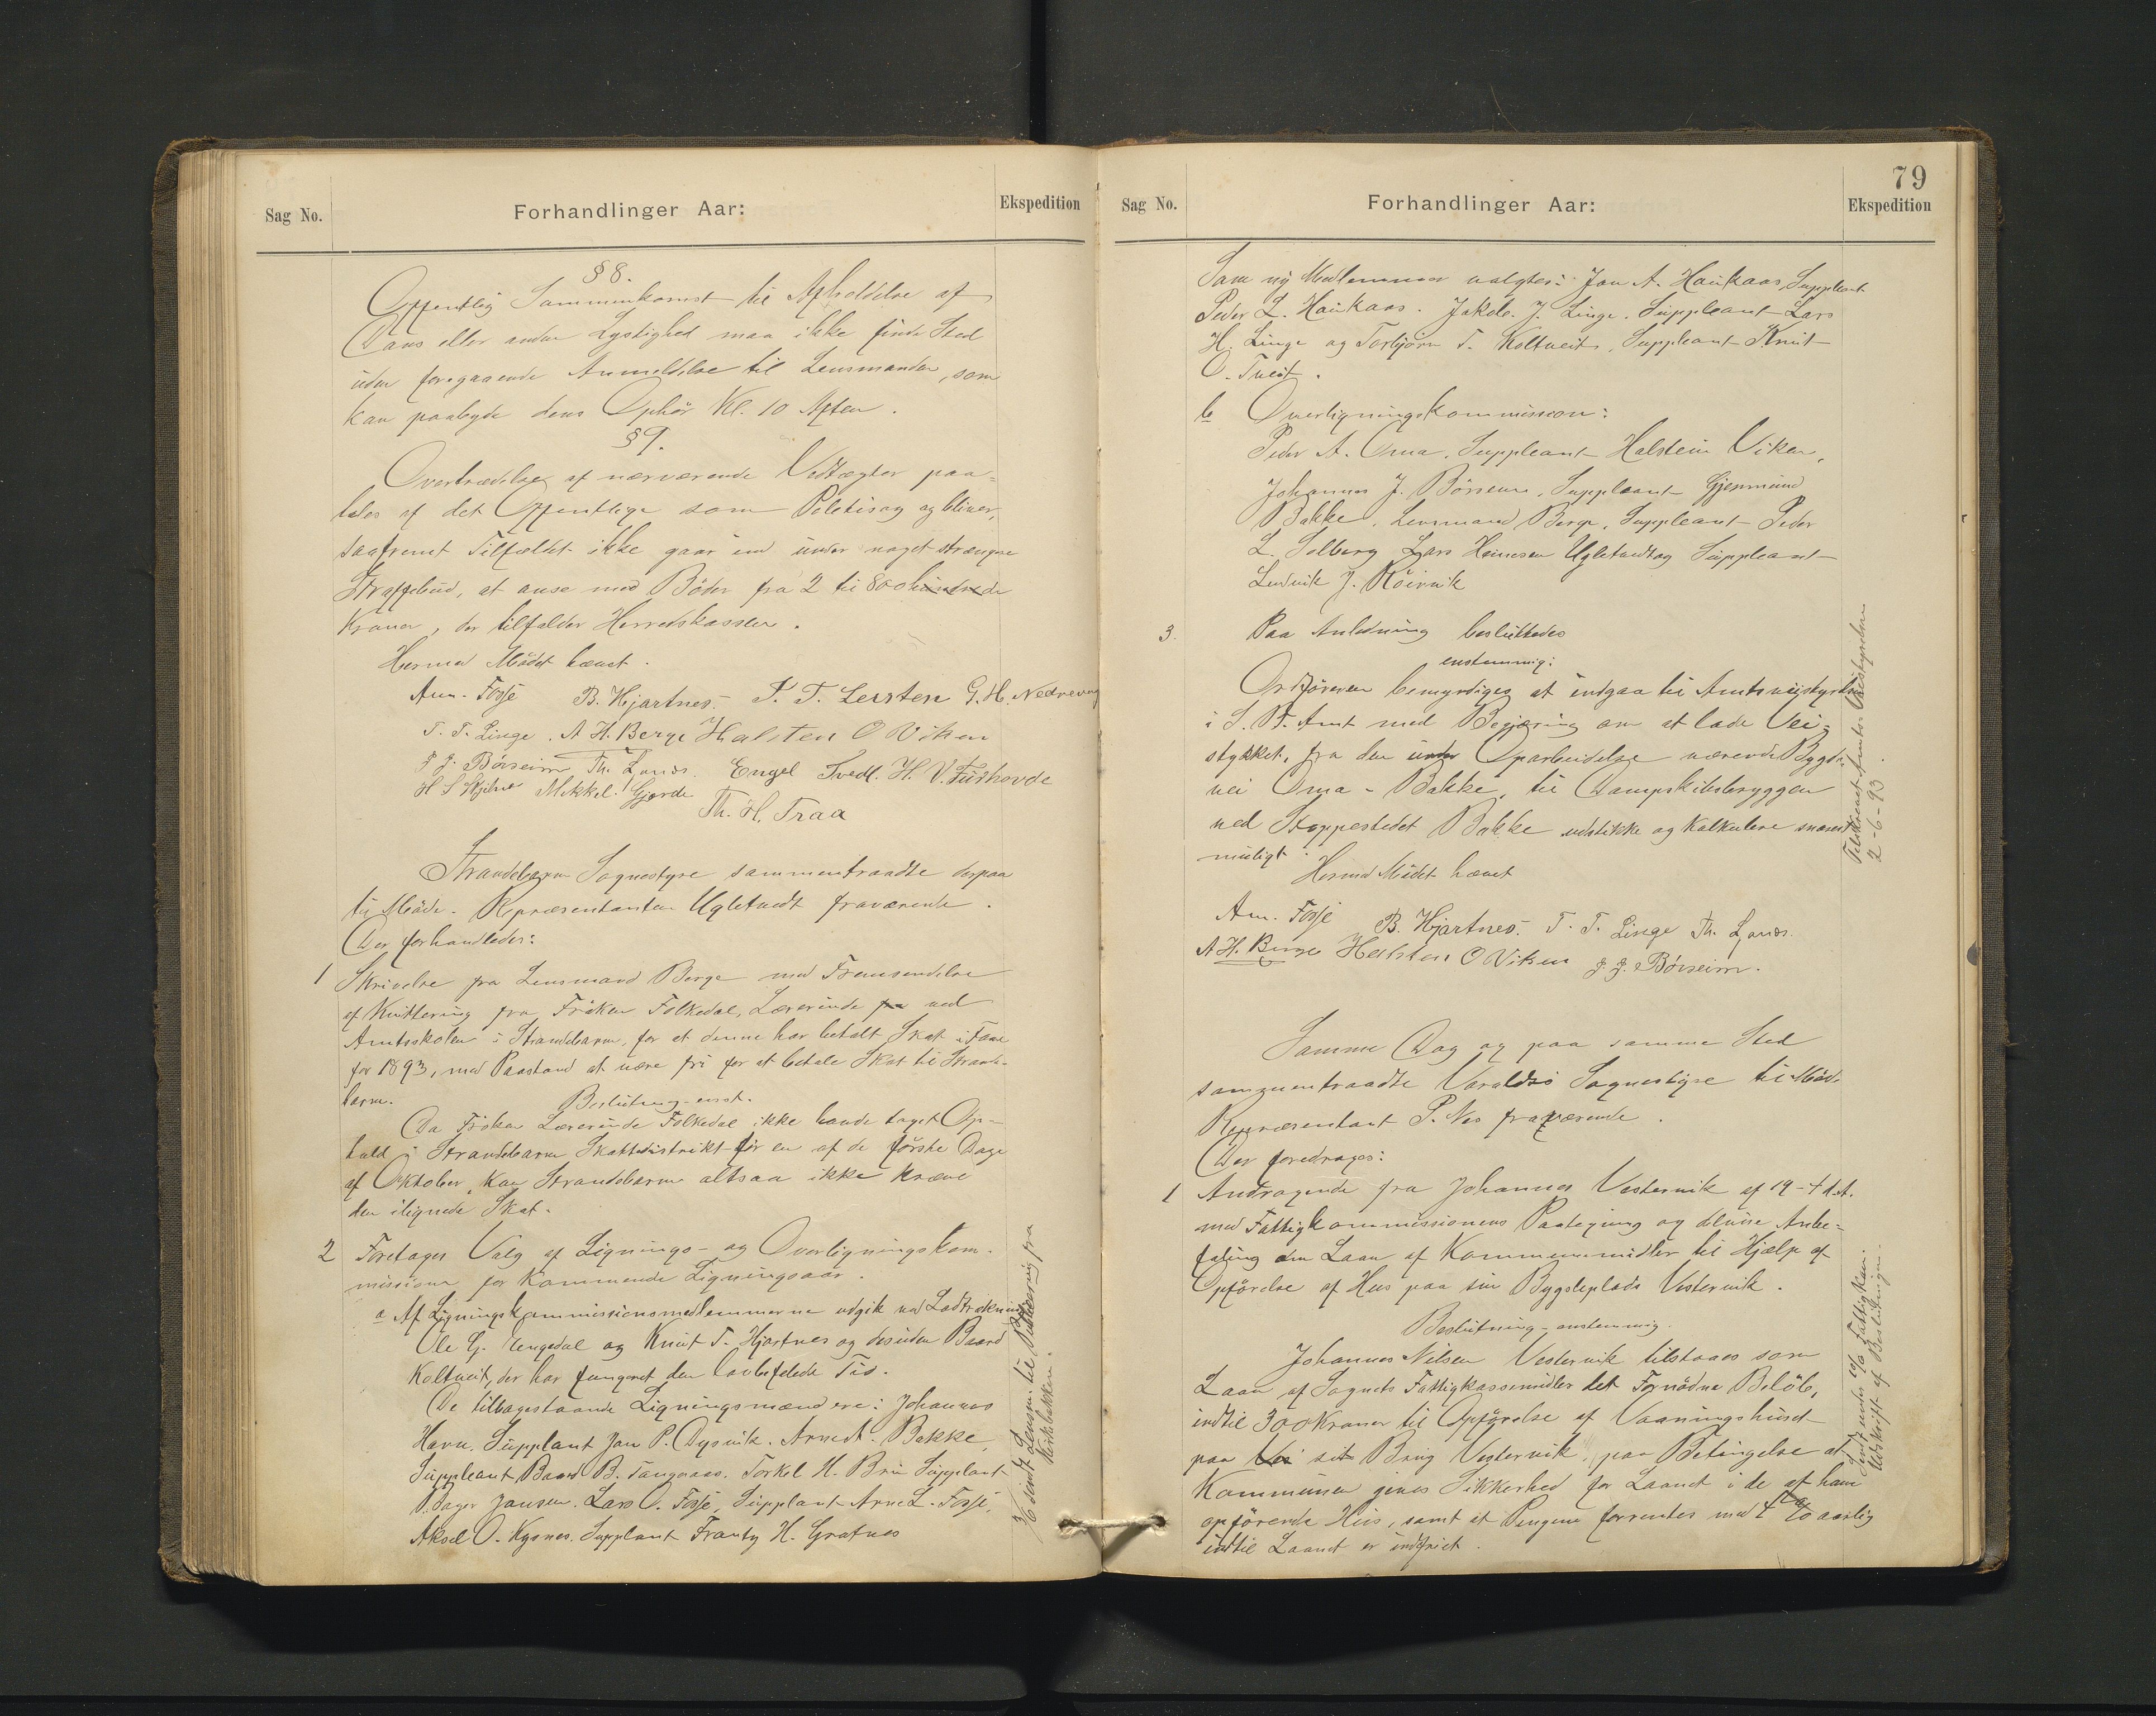 Sag No.
Forhandlinger Aar:
Ekspedition
§ 8.
Offentlig Sammenkomst til Afholdelse af
Dans eller anden Lystighed maa ikke finde Sted
uden foregaaende Anmeldelse til Lensmanden, som
kan paabyde dens Ophør Kl. 10 Aften.
§ 9.
Overtrædelse af nærværende Vedtægter paa-
tales af det Offentlige som Politisag og bliver,
saafremt Tilfældet ikke gaar ind under noget strængere
Straffebud, at anse med Böder fra 2 til 800 hundrede
Kroner, der tilfalder Herredskassen.
Hermed Mödet hævet.
Am. Fosse B. Hjartnes. T. T. Leisten G. H. Nedrevaag
T. T. Linge. A H. Berge Halsten O Viken
J. J. Börseim Th. Lynes. Engel Tvedt. H. V. Furehovde
H S Skjelnes Mikkel Gjerde
Th. H. Traa
Strandebarm Sognestyre sammentraadte derpaa
til Möde. Repræsentanten Ugletvedt fraværende.
Der forhandledes:
1 Skrivelse fra Lensmand Berge med Fremsendelse
af Kvittering fra Fröken Folkedal, Lærerinde fra ved
Amtsskolen i Strandebarm, for at denne har betalt Skat i Fane
for 1893, med Paastand at være fri for at betale Skat til Strande-
barm.
Beslutning - enst.
Da Fröken Lærerinde Folkedal ikke havde taget Op-
hald i Strandebarm Skattedistrikt før en af de første Dage
af Oktober, kan Strandebarm altsaa ikke kræve
den ilignede Skat.
2 Foretages Valg af Lignings- og Overligningskom-
missioner for kommende Ligningsaar.
a Af Ligningskommissionsmedlemmerne udgik ved Lodtrækning
Ole G. Tengsdal og Knut T. Hjartnes og desuden Baard
Koltveit, der har fungeret den lovbefalede Tid.
De tilbagestaaende Ligningsmænd ere: Johannes
Havn. Supplant Jon P. Dysvik. Arne A. Bakke,
Suppleant Baard B. Tangeraas. Torkel H. Bru Supplant
P. Jansen. Lars O. Fosse, Supplant Arne L. Fosse,
Aksel O. Kysnes. Supplant Frantz H. Grafnes
79
Sag No.
Forhandlinger Aar:
Ekspedition
Som ny Medlemmer valgtes: Jon A. Haukaas, Suppleant
Peder L. Haukaas. Jakob J. Linge. Suppleant Lars
H. Linge og Torbjörn T. Koltveit, Suppleant Knut
O. Tveit.
b Overligningskommission:
Peder A. Oma. Suppleant Halstein Viken,
Johannes J. Börseim, Suppleant Gjermund
Bakke. Lensmand Berge, Suppleant Peder
L. Solberg Lars Ugletvedt og Suppleant
Ludvik J. Röirvik
3. Paa Anledning besluttedes
enstemmig:
Ordföreren bemyndiges at indgaa til Amtsveistyrelsen
i S. B. Amt med Begjæring om at lade Vei-
stykket, fra den under Oparbeidelse værende Bygde-
vei Oma - Bakke, til Dampskibsbryggen
ved Stoppestedet Bakke udstikke og kalkulere snarest
muligt.
Hermed Mödet hævet
Am. Fosse B. Hjartnes. T. T. Linge Th. Lynes.
A H. Berge Halsten O Viken J. J. Börseim.
Tilskrevet Amtsveistyrelsen
2-6-93
Samme Dag og paa samme Sted
sammentraadte Varaldsö Sognestyre til Möde
Repræsentant P. Nes fraværende.
Der foredrages:
1 Andragende fra Johannes Vestervik af 19-4 d. A.
med Fattigkommissionens Paategning og delvise Anbe-
faling om Laan af Kommunemidler til Hjælp af
Opförelse af Hus paa sin Bygsleplads Vestervik.
Beslutning - enstemmig.
Johannes Nilsen Vestervik tilstaaes som
Laan af Sognets Fattigkassemidler det Fornödne Belöb,
indtil 300 Kroner til Opförelse af Vaaningshuset
paa Ve sit Brug Vestervik, paa Betingelse at
Kommunen gives Sikkerhed for Laanet i de af ham
opförende Hus, samt at Pengene forrentes med 4 % aarlig
indtil Laanet er indfriet.
Udskrift af Beslutningen.